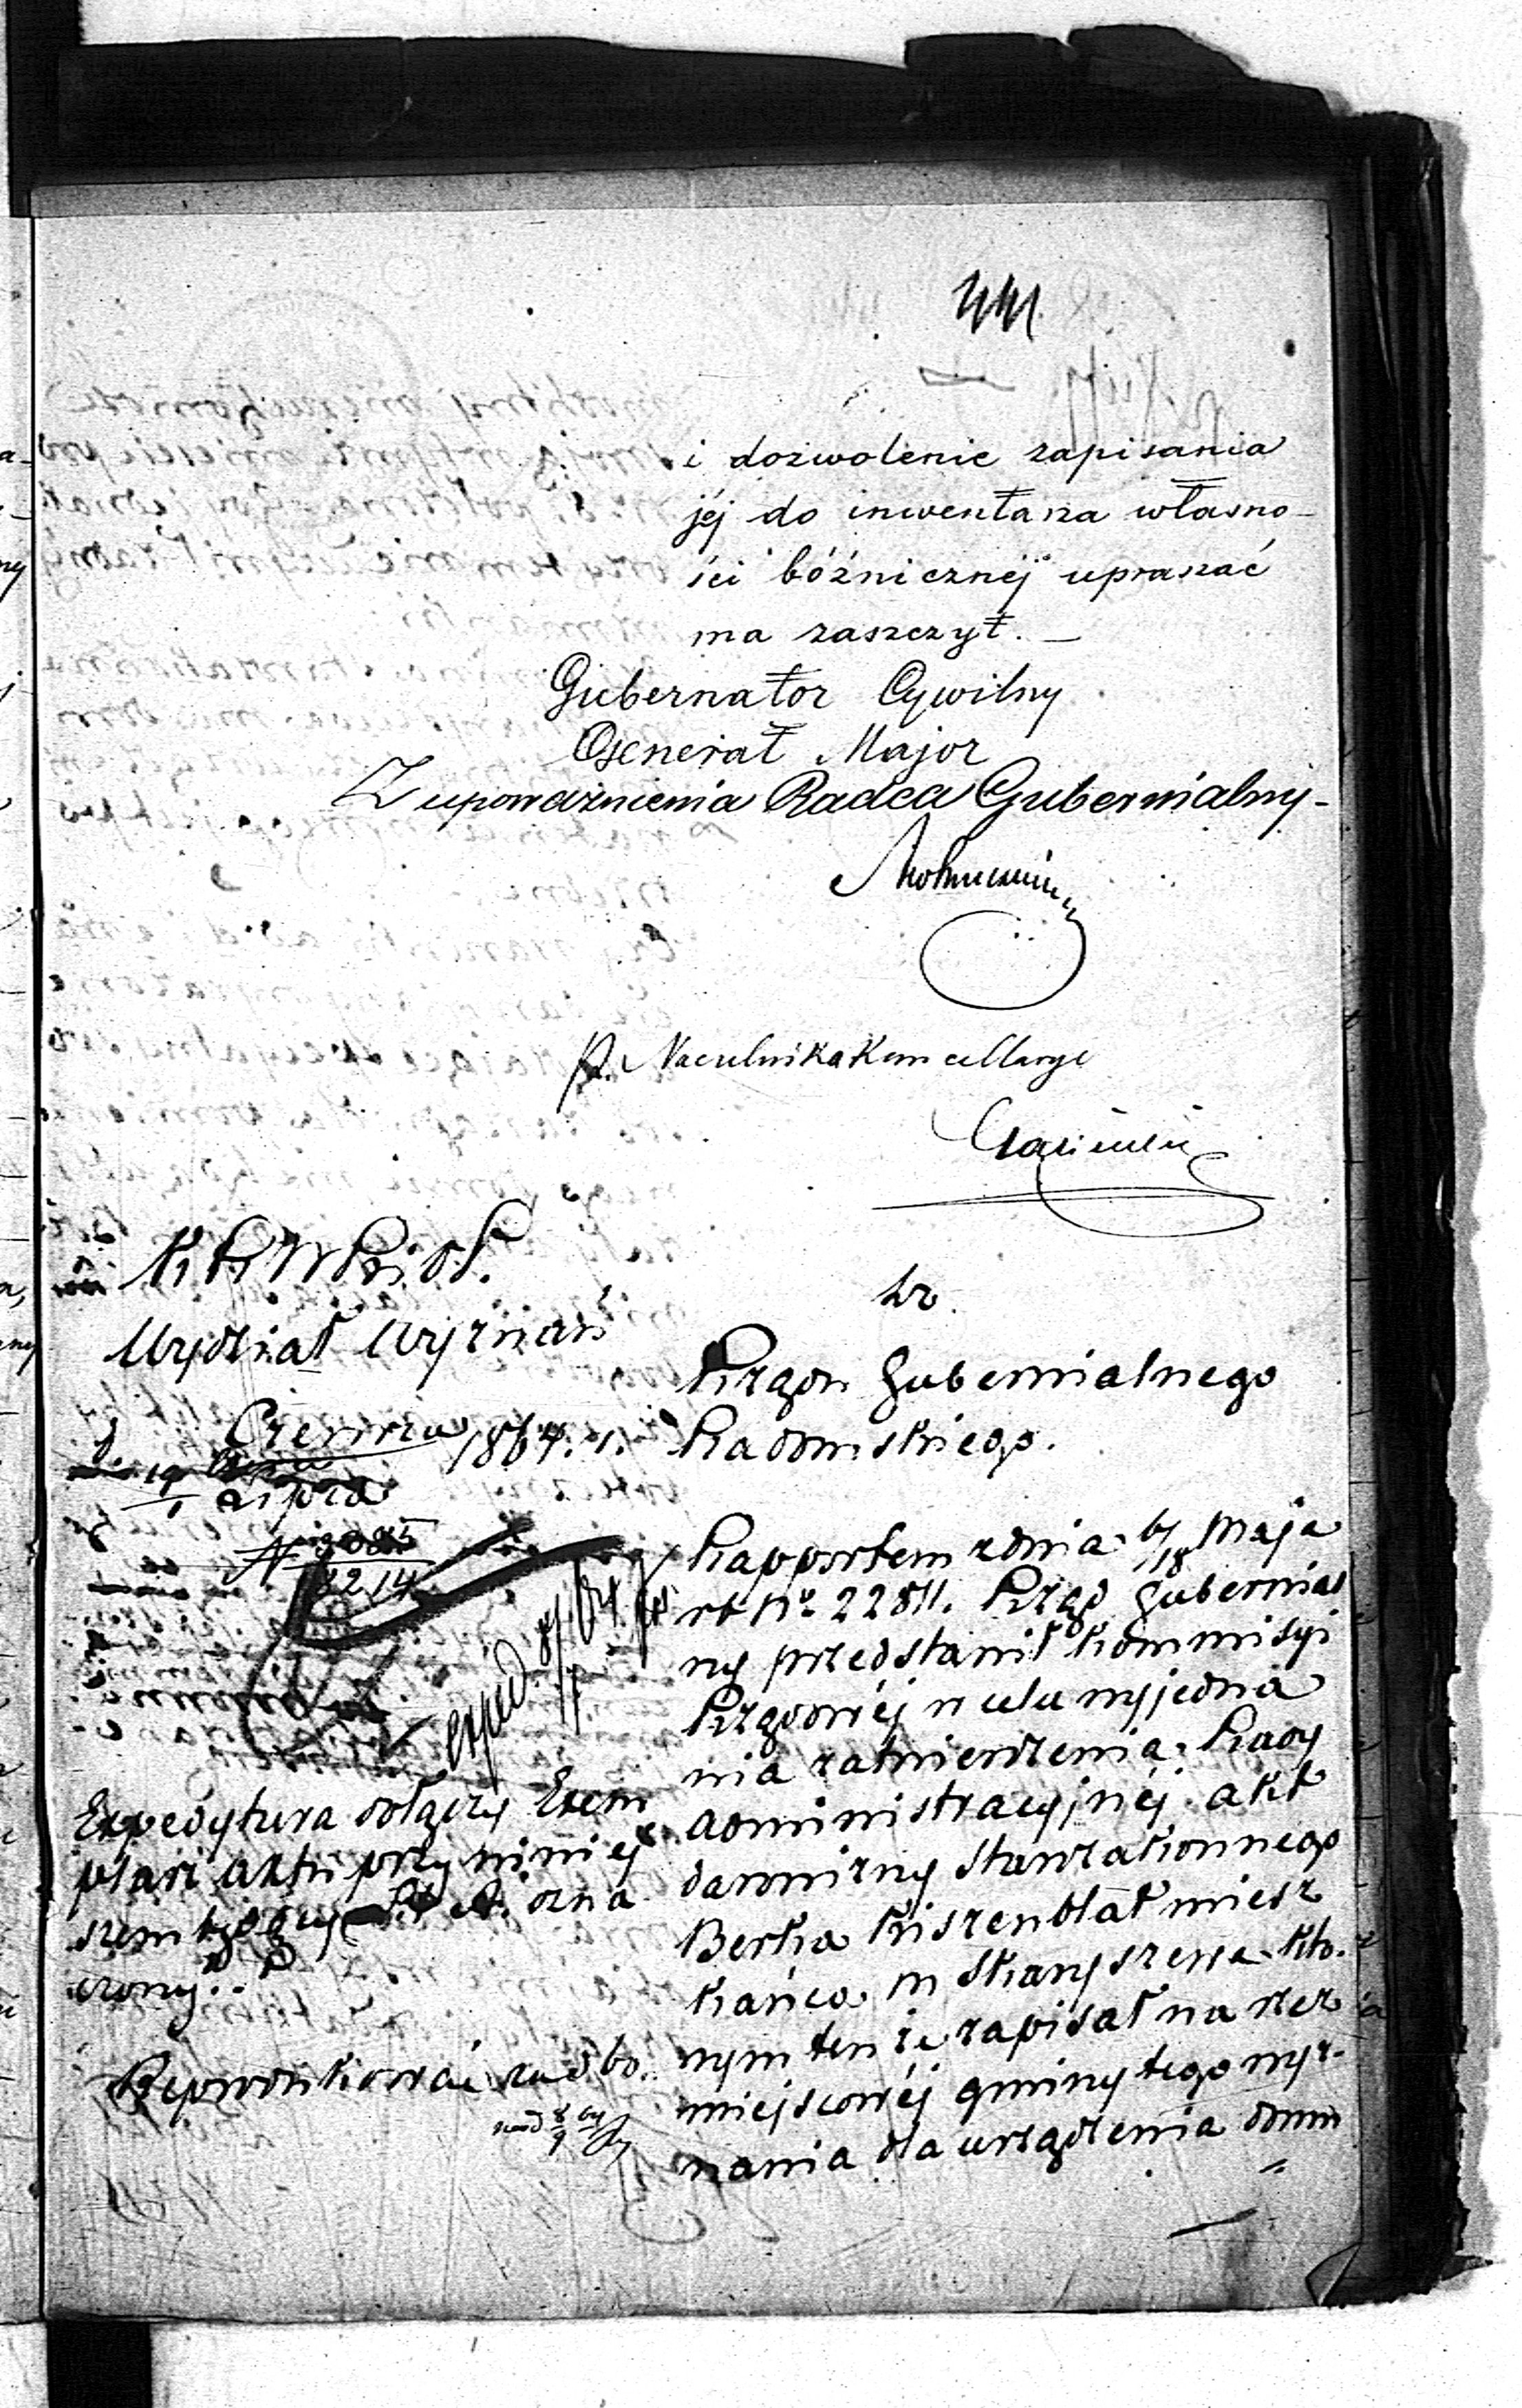 i dozwolenie zapisania
jéj do inwentarza własno-
ści bóźnicznéj upraszać
ma zaszczyt. —
Gubernator Cywilny
Generał Major
Z upoważnienia Radca Gubernialny-
p. Naczelnika Kancellaryi
Wydział Wyznań
Czerwca 1864. r.
19
1 Lipca
N
8214
exped.
Expedytura dołączy Exem
plarz aktu przy niniej
szem będący lit. A. ozna
czony.
Reprodukować za d 60.
do
Rządu Gubernialnego
Radomskiego.
Rapportem z dnia 6/18 Maja
rb No 22811. Rząd Gubernial
ny przedstawił Kommisyi
Rządowéj w celu wyjedna
nia zatwierdzenia Rady
Administracyjnéj akt
darowizny Starozakonnego
Berka Kiszenblat miesz
kańca m Skaryszewa któ-
rym tenże zapisał na rzecz
miejscowéj gminy tego wyz-
nania dla urządzenia domu